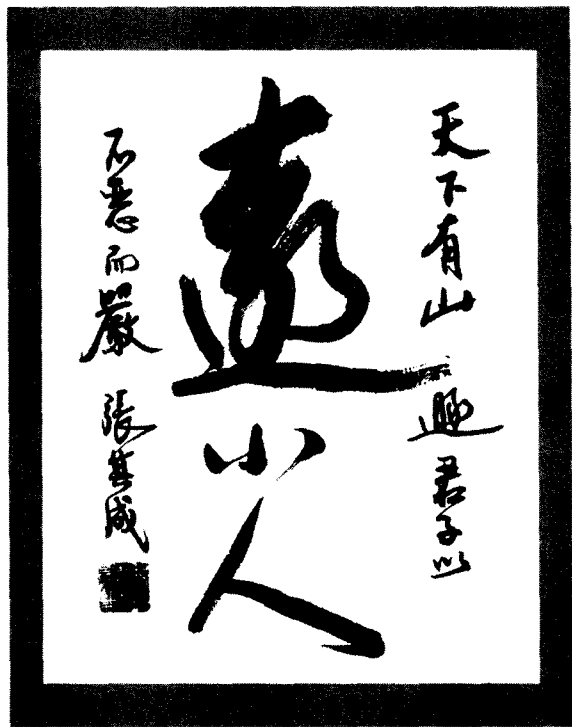 天下有山遯君子以
遠小人
不惡而嚴 張其成